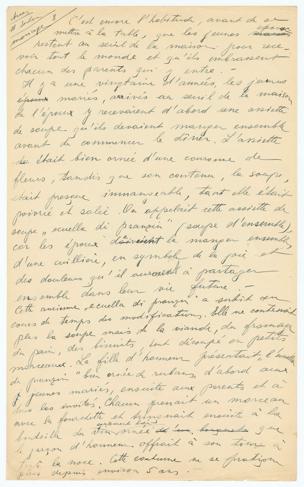 C'est encore l'habitude, avant de se
mettre à la table, que les jeunes époux
restent au seuil de la maison pour rece-
voir tout le monde et qu'ils embrassent
chacun des parents qui y entre.
Il y a une vingtaine d'années, les jeunes
mariés, arrivés au seuil de la maison
de l'époux y recevaient d'abord une assiette
de soupe qu'ils devaient manger ensemble
avant de commencer le dîner. L'assiette
était bien ornée d'une couronne de
fleurs, tandis que son contenu, la soupe,
était presque immangeable, tant elle était
poivrée et salée. On appelait cette assiette de
soupe "scuella di pranzin" (soupe d'ensemble)
car les époux devaient la manger ensemble,
d'une cuillière, en symbole de la joie et
des douleurs qu'il auraient à partager
ensemble dans leur vie future.
Cette ancienne "scuella di pranzin" a subit au
cours de temps des modifications. Elle ne contenait
plus la soupe mais de la viande, du fromage,
du pain, des biscuits, tout découpé en petits
morceaux. La fille d'honneur présentait l'
bien ornée de rubans d'abord aux
jeunes mariés, ensuite aux parents et à
tous les invités. Chacun prenait un morceau
avec la fourchette et ensuite à la
bouteille de vin ornée que le
garçon d'honneur offrait à son tour à
toute la noce. Cette coutume ne se pratique
plus depuis environ 5 ans.